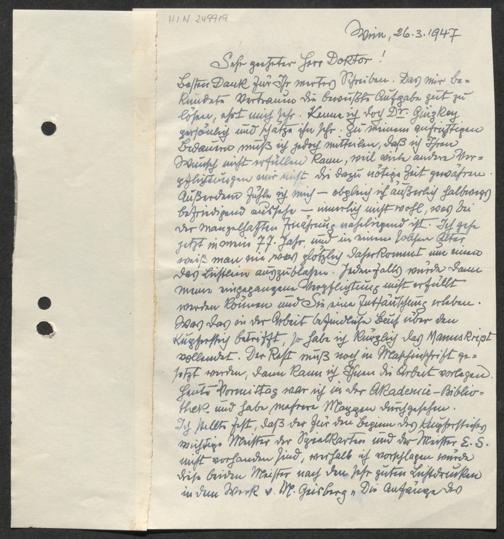 HIN 249919
Wien, 26.3.1947
Sehr geehrter Herr Doktor!
Besten Dank für Ihr wertes Schreiben. Das mir be-
kundete Vertrauen die bewußte Aufgabe gut zu
lösen, ehrt mich sehr. Kenne ich doch Dr.
persönlich und schätze ihn sehr. Zu meinem aufrichtigen
Bedauern muß ich jedoch mitteilen, daß ich Ihren
Wunsch nicht erfüllen kann, weil viele andere Ver-
pflichtungen mir nicht die dazu nötige Zeit gewähren.
Außerdem fühle ich mich – obgleich ich äußerlich halbwegs
befriedigend aussehe – innerlich nicht wohl, was bei
der mangelhaften Ernährung naheliegend ist. Ich gehe
jetzt in mein 77. Jahr, und in einem solchen Alter
weiß man nie was plötzlich daherkommt um einem
das Lichtlein auszublasen. Jedenfalls würde dann
meine eingegangene Verpflichtung nicht erfüllt
werden können und Sie eine Enttäuschung erleben.
Was das in der Arbeit befindliche Buch über den
Kupferstich betrifft, so habe ich kürzlich das Manuskript
vollendet. Der Rest muß noch in Maschinschrift ge-
setzt werden, dann kann ich Ihnen die Arbeit vorlegen.
Heute Vormittag war ich in der Akademie-Biblio-
thek und habe mehrere Mappen durchgesehen.
Ich stellte fest, daß der für den Beginn des Kupferstiches
wichtige Meister der Spielkarten und der Meister E.S.
nicht vorhanden sind, weshalb ich vorschlagen würde
diese beiden Meister nach den sehr guten Lichtdrucken
in dem Werk v. M. Geisberg „Die Anfänge des